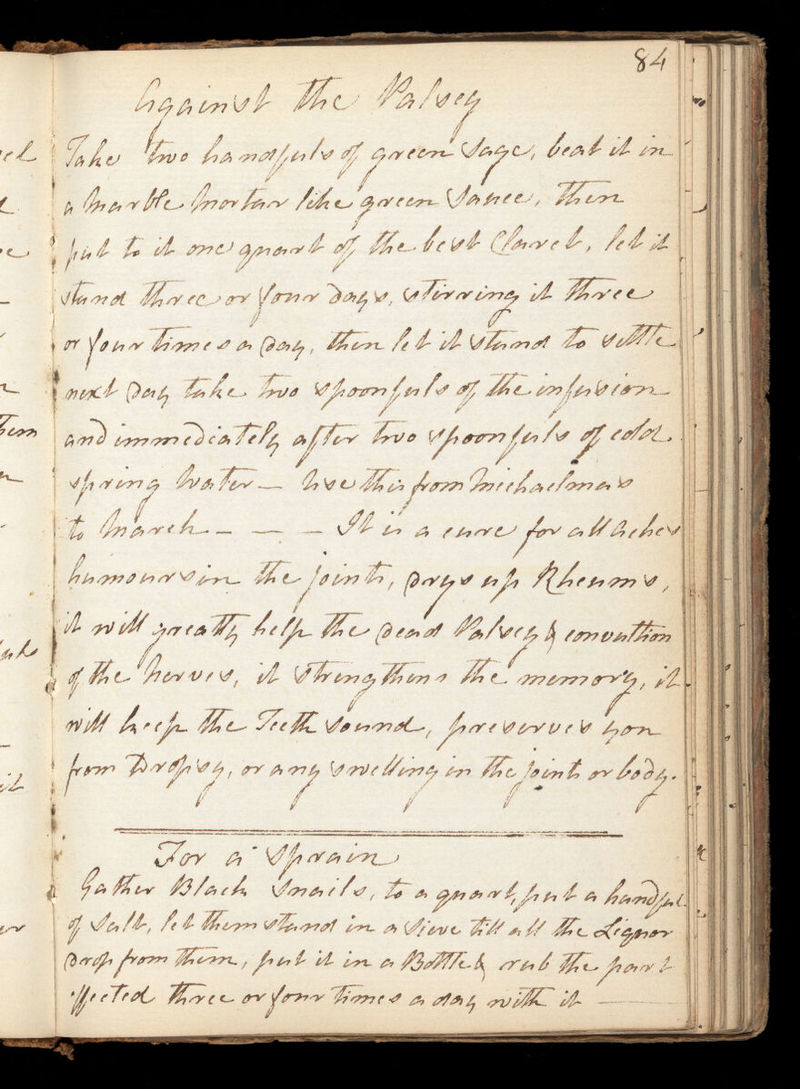 84
Against the Palsey
Take two handfuls of green Sage, beat it in
a Marble Mortar like green Sauce, then
put to it one quart of the best Claret, let it
stand three or four Days, stirring it three
or four times a Day, then let it stand to settle
next Day take two spoonfuls of the infusion
and immediately after two spoonfuls of cold
spring Water – Use this from Michaelmas
to March – – – It is a cure for all Aches
humours in the joints, Drys up Rheums,
it will greatly help the Dead Palsey & convultion
of the Nerves, it Strengthens the memory, it
will keep the Teeth sound, preserves you
from Dropsy, or any swelling in the joints or body.
For a Sprain
Gather Black Snails, to a quart, put a handful
of Salt, let them stand in a Sieve till all the Liquor
Drop from them, put it in a Bottle & rub the part
effected three or four times a day with it –